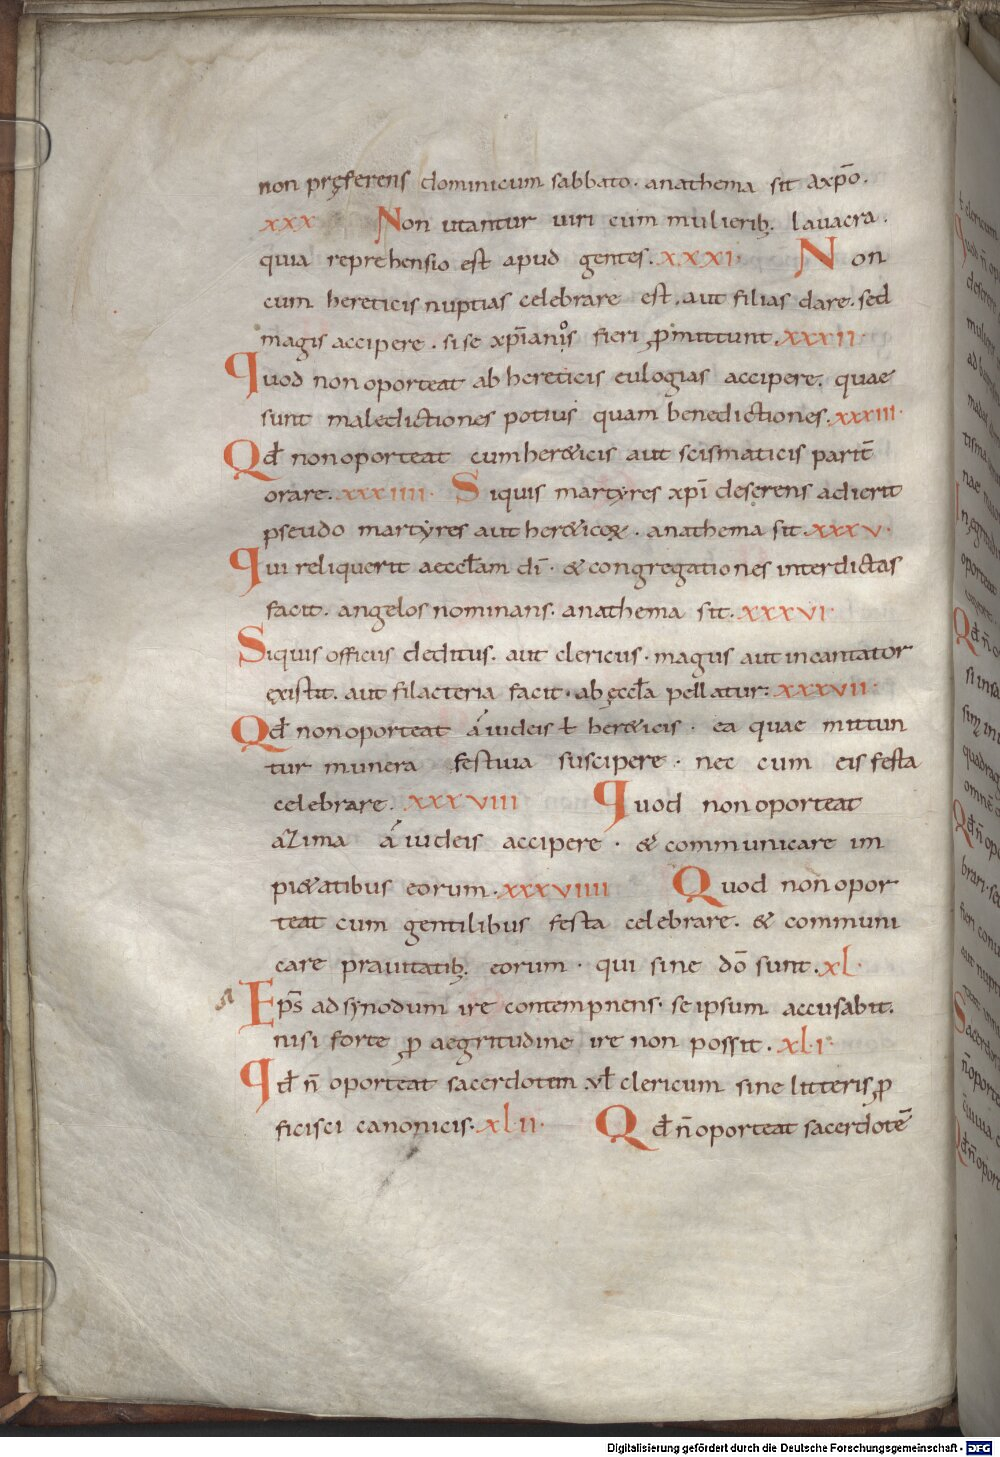 non preferens dominicum sabbato. anathema sit axp̄o.
xxx Non utantur uiri cum mulierib; lauacra.
quia reprehensio est apud gentes. xxxi. Non
cum hereticis nuptias celebrare est. aut filias dare. sed
magis accipere. si se xp̄ianos fieri ꝓmittunt. xxxii.
Quod non oporteat ab hereticis eulogias accipere. quae
sunt maledictiones potius quam benedictiones. xxxiii.
Qđ non oporteat cum her&icis aut scismaticis parit̄
orare. xxxiiii. Siquis martyres xp̄i deserens adierit
pseudo martyres aut her&icoꝝ. anathema sit. xxxv.
Qui reliquerit aeccłam dī. & congregationes interdictas
facit. angelos nominans. anathema sit. xxxvi.
Siquis officiis deditus. aut clericus. magus aut incantator
exsistit. aut filacteria facit. ab ęccła pellatur: xxxvii.
Qđ non oporteat a iudeis ł her&icis. ea quae mittun
tur munera festiua suscipere. nec cum eis festa
celebrare. xxxviii Quod non oporteat
azima a iudeis accipere. & communicare im
pi&atibus eorum. xxxviiii Quod non opor
teat cum gentilibus festa celebrare. & communi
care prauitatib; eorum. qui sine dō sunt. xl.
Ep̄s ad synodum ire contempnens. se ipsum accusabit.
nisi forte ꝓ aegritudine ire non possit. xl.i.
Qđ n̄ oporteat sacerdotum vł clericum sine litteris ꝓ
ficisci canonicis. xl.ii. Qđ n̄ oporteat sacerdotē
Digitalisierung gefördert durch die Deutsche Forschungsgemeinschaft - DFG